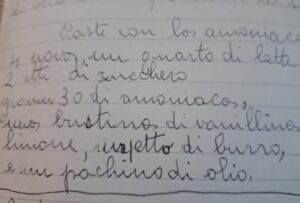 Paste con los amoniaca
4 uova, un quarto di latte
2 etti di zucchero
grammi 30 di amoniacos,
bustina di vanillina
limone, un etto di burro,
e un pochino di olio.